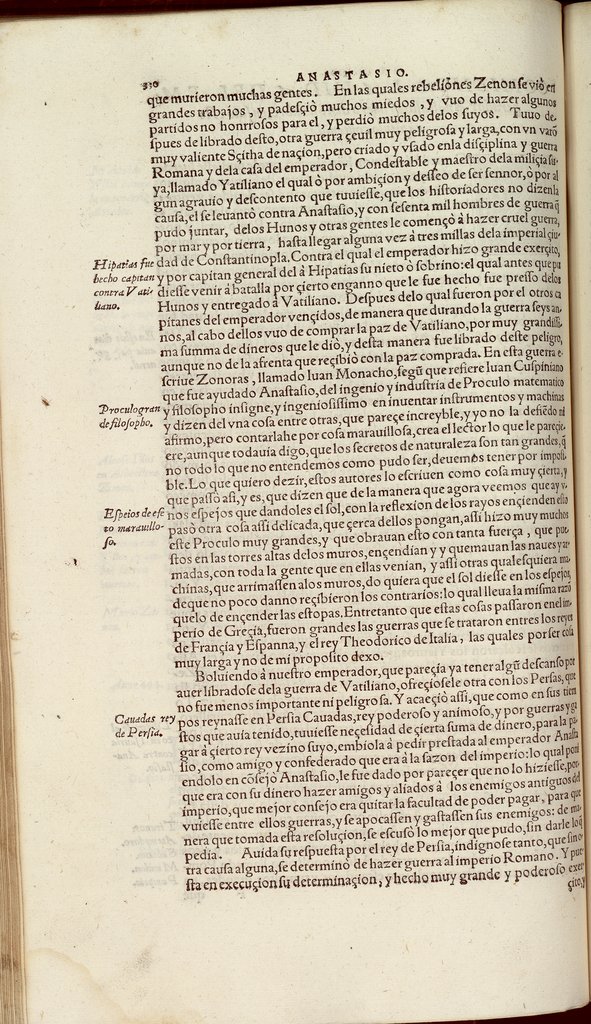 330
ANASTASIO.
que murieron muchas gentes. En las quales rebeliónes Zenon se vió en
grandes trabajos, y padesçió muchos miedos, y vuo de hazer algunos
partidos no honrrosos para el, y perdió muchos delos suyos. Tuuo de-
spues de librado desto, otra guerra çeuil muy peligrosa y larga, con vn varō
muy valiente Sçitha de naçion, pero criado y vsado enla disçiplina y guerra
Romana y dela casa del emperador, Condestable y maestro dela miliçia su-
ya, llamado Vatiliano el qual ò por ambiçion y desseo de ser sennor, ò por al
gun agrauio y descontento que tuuiesse, que los historiadores no dizen la
causa, el se leuantó contra Anastasio, y con sesenta mil hombres de guerra q̄
pudo juntar, delos Hunos y otras gentes le començò à hazer cruel guerra,
por mar y por tierra, hasta llegar alguna vez à tres millas dela imperial çiu-
Hipatias fue
hecho capitan
contra Vati-
liano.
dad de Constantinopla. Contra el qual el emperador hizo grande exerçito,
y por capitan general del à Hipatias su nieto ò sobrino: el qual antes que pu
diesse venir à batalla por çierto enganno que le fue hecho fue presso delos
Hunos y entregado à Vatiliano. Despues delo qual fueron por el otros ca
pitanes del emperador vençidos, de manera que durando la guerra seys an-
nos, al cabo dellos vuo de comprar la paz de Vatiliano, por muy grandissi-
ma summa de dineros que le dió, y desta manera fue librado deste peligro,
aunque no de la afrenta que reçibió con la paz comprada. En esta guerra e-
scriue Zonoras, llamado Iuan Monacho, segū que refiere Iuan Cuspiniano
que fue ayudado Anastasio, del ingenio y industria de Proculo matematico
Proculo gran
de filosopho.
y filosopho insigne, y ingeniosissimo en inuentar instrumentos y machinas
y dizen del vna cosa entre otras, que pareçe increyble, y yo no la defiēdo ni
afirmo, pero contarlahe por cosa marauillosa, crea el lector lo que le pareçi-
ere, aunque todauía digo, que los secretos de naturaleza son tan grandes, q̄
no todo lo que no entendemos como pudo ser, deuemos tener por impossi-
ble. Lo que quiero dezir, estos autores lo escriuen como cosa muy çierta, y
que passò asi, y es, que dizen que de la manera que agora veemos que ay v-
Espeios de efe
to marauillo-
so.
nos espejos que dandoles el sol, con la reflexion de los rayos ençienden
pasò otra cosa assi delicada, que çerca dellos pongan, assi hizo muy muchos
este Proculo muy grandes, y que obrauan esto con tanta fuerça, que pue-
stos en las torres altas delos muros, ençendían y y quemauan las naues y ar-
madas, con toda la gente que en ellas venían, y assi otras qualesquiera ma-
chinas, que arrimassen alos muros, do quiera que el sol diesse en los espejos,
de que no poco danno reçibieron los contrarios: lo qual lleua la misma razō
quelo de ençender las estopas. Entretanto que estas cosas passaron enel im-
perio de Greçia, fueron grandes las guerras que se trataron entre los reyes
de Françia y Espanna, y el rey Theodorico de Italia, las quales por ser cosa
muy larga y no de mi proposito dexo.
Boluiendo à nuestro emperador, que pareçía ya tener algū descanso por
auer libradose dela guerra de Vatiliano, ofreçiosele otra con los Persas, que
no fue menos importante ni peligrosa. Y acaeçiò assi, que como en sus tiem
Cauadas rey
de Persia.
pos reynasse en Persia Cauadas, rey poderoso y animoso, y por guerras y ga
stos que auía tenido, tuuiesse neçesidad de çierta suma de dinero, para la pa-
gar à çierto rey vezino suyo, embiola à pedir prestada al emperador Anasta
sio, como amigo y confederado que era à la sazon del imperio: lo qual poni
endolo en cōsejo Anastasio, le fue dado por pareçer que no lo hiziesse, por-
que era con su dinero hazer amigos y aliados à los enemigos antiguos del
imperio, que mejor consejo era quitar la facultad de poder pagar, para que
vuiesse entre ellos guerras, y se apocassen y gastassen sus enemigos: de ma-
nera que tomada esta resoluçion, se escusò lo mejor que pudo, sin darle lo q̄
pedía. Auida su respuesta por el rey de Persia, indignose tanto, que sin o-
tra causa alguna, se determinò de hazer guerra al imperio Romano. Y pue-
sta en execuçion su determinaçion, y hecho muy grande y poderoso exer
çito, y